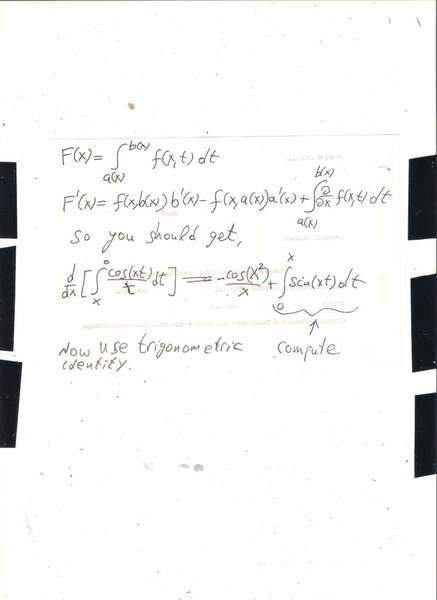 F(x) = ∫_{a(x)}^{b(x)} f(x,t) dt
F'(x) = f(x,b(x)) b'(x) - f(x,a(x)) a'(x) + ∫_{a(x)}^{b(x)} ∂/∂x f(x,t) dt
So you should get,
d/dx [ ∫_x^0 cos(xt)/t dt ] = -cos(x²)/x + ∫_0^x sin(xt) dt
Now use trigonometric
identity.
compute